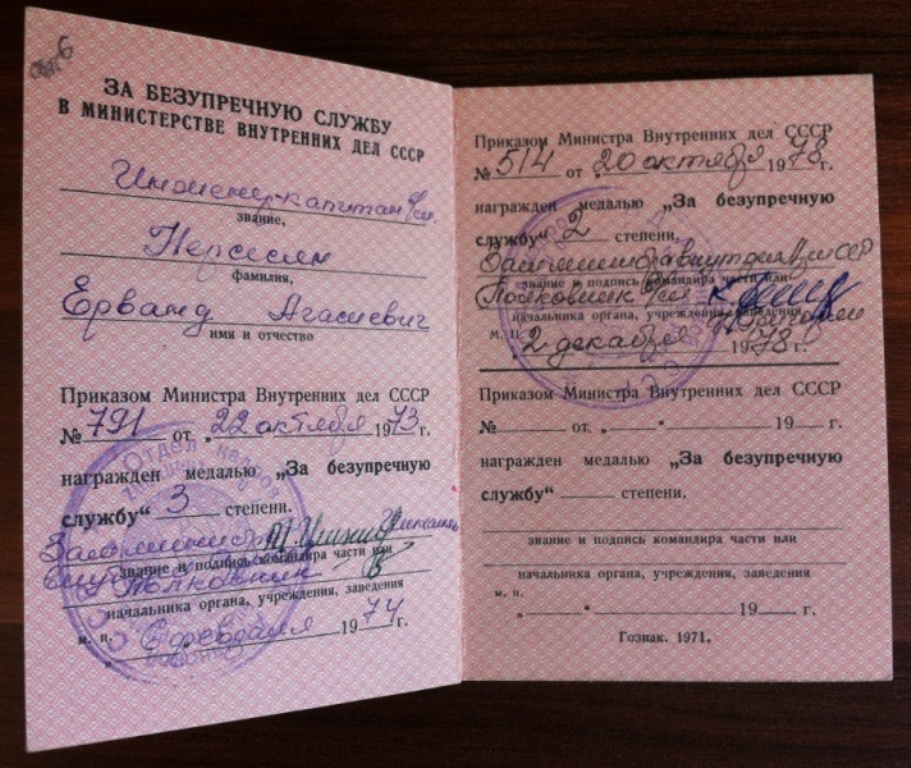 ЗА БЕЗУПРЕЧНУЮ СЛУЖБУ
В МИНИСТЕРСТВЕ ВНУТРЕННИХ ДЕЛ СССР
Инженер-капитан
звание,
Персесян
фамилия,
Ерванд Агасиевич
имя и отчество
Приказом Министра Внутренних дел СССР
№ 791 от „22 октября 1973 г.
награжден медалью „За безупречную
службу“ 3 степени.
Зам. министр
звание и подпись командира части или
Полковник
начальника органа, учреждения, заведения
м. п.
6 февраля 1974 г.
Приказом Министра Внутренних дел СССР
№ 514 от „20 октября 1978 г.
награжден медалью „За безупречную
службу“ 2 степени.
Зам министра внутр дел СССР
звание и подпись командира части или
Полковник
начальника органа, учреждения, заведения
м. п.
2 декабря 1978 г.
Приказом Министра Внутренних дел СССР
№ от „ “ 19 г.
награжден медалью „За безупречную
службу“ степени.
звание и подпись командира части или
начальника органа, учреждения, заведения
м. п.
„ “ 19 г.
Гознак. 1971.